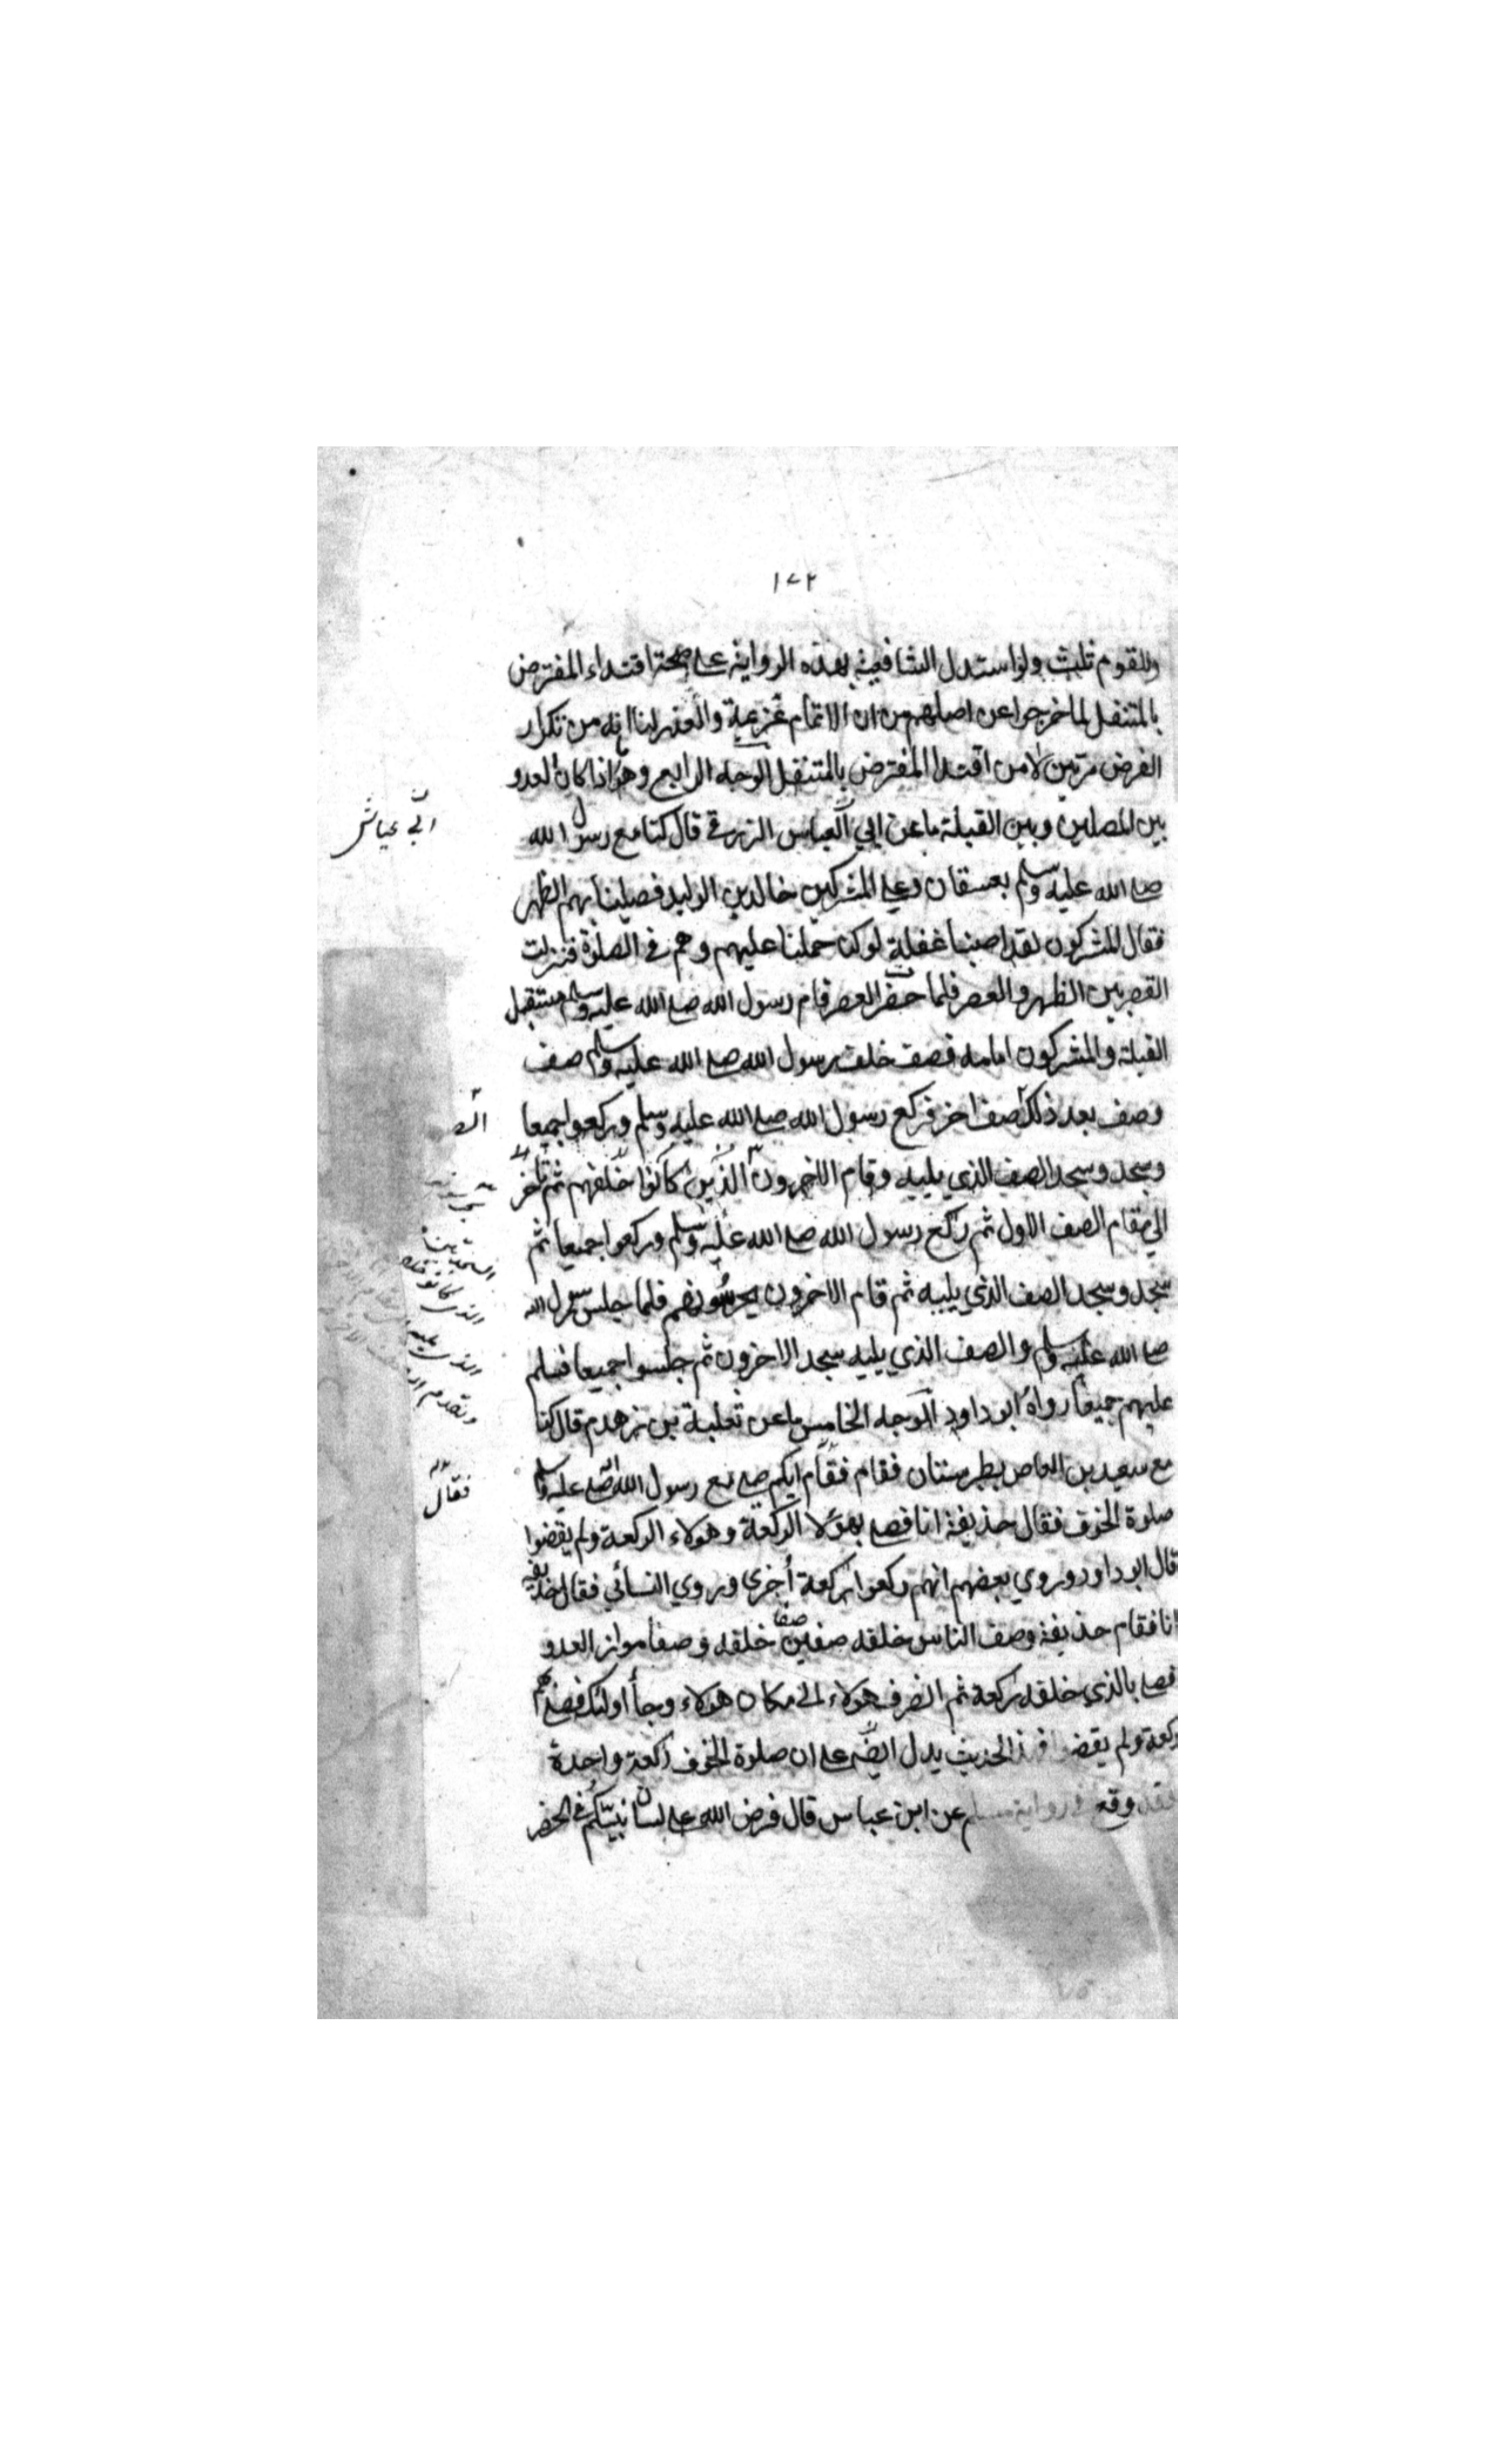 ١٧٢
وللقوم ثلث ولو استدل الشافعية بهذه الرواية على صحة اقتداء المفترض
بالمتنفل لما خرجوا عن اصلهم من ان الاتمام عزيمة والعذر لنا انه من تكرار
الفرض مرتين لا من اقتداء المفترض بالمتنفل الوجه الرابع وهو اذا كان العدو
بين المصلين وبين القبلة ما عن ابي العباس الزرقي قال كنا مع رسول الله
ابي عياش
صلى الله عليه وسلم بعسفان وعلى المشركين خالد بن الوليد فصلينا بهم الظهر
فقال المشركون لقد اصبنا غفلة لو كنا حملنا عليهم وهم في الصلوة فنزلت
القصر بين الظهر والعصر فلما حضر العصر قام رسول الله صلى الله عليه وسلم مستقبل
القبلة والمشركون امامه فصف خلف رسول الله صلى الله عليه وسلم صف
وصف بعد ذلك صف اخر فركع رسول الله صلى الله عليه وسلم وركعوا جميعا
وسجد وسجد الصف الذي يليه وقام الاخرون الذين كانوا خلفهم ثم تاخر
الى مقام الصف الاول ثم ركع رسول الله صلى الله عليه وسلم وركعوا جميعا ثم
سجد وسجد الصف الذي يليه ثم قام الاخرون يحرسونهم فلما جلس رسول الله
صلى الله عليه وسلم والصف الذي يليه سجد الاخرون ثم جلسوا جميعا فسلم
الذي يليه
وتقدم
عليهم جميعا رواه ابو داود الوجه الخامس ما عن ثعلبة بن زهدم قال كنا
مع سعيد بن العاص بطبرستان فقام فقام ايكم صلى مع رسول الله صلى الله عليه وسلم
فقال
صلوة الخوف فقال حذيفة انا فصلى بهؤلا الركعة وهولاء الركعة ولم يقضوا
قال ابو داود وروي بعضهم انهم ركعوا ركعة أخرى وروي النسائي فقال حذيفة
انا فقام حذيفة وصف الناس خلفه صفين صفا خلفه وصفا مواز العدو
فصلى بالذي خلفه ركعة ثم انصرف هولاء الى مكان هولاء وجأ اولئك فصلى بهم
ركعة ولم يقضوا فهذا الحديث يدل ايضا على ان صلوة الخوف ركعة واحدة
فقد وقع في رواية مسلم عن ابن عباس قال فرض الله على لسان نبيكم في الحضر